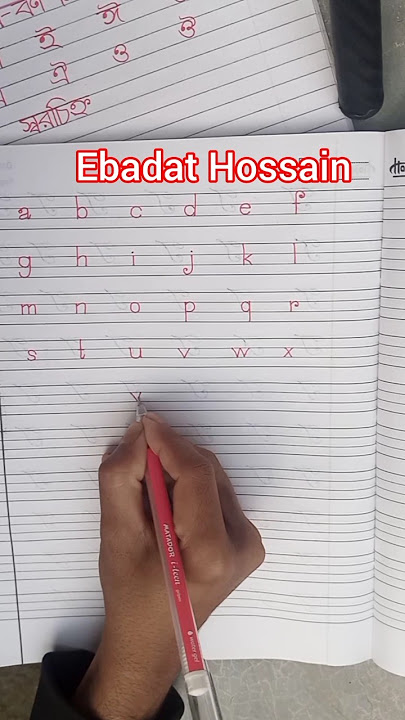 ই ঈ
ঐ ও ঔ
স্বরচিহ্ন
Ebadat Hossain
a b c d e f
g h i j k l
m n o p q r
s t u v w x
MATADOR i-teen